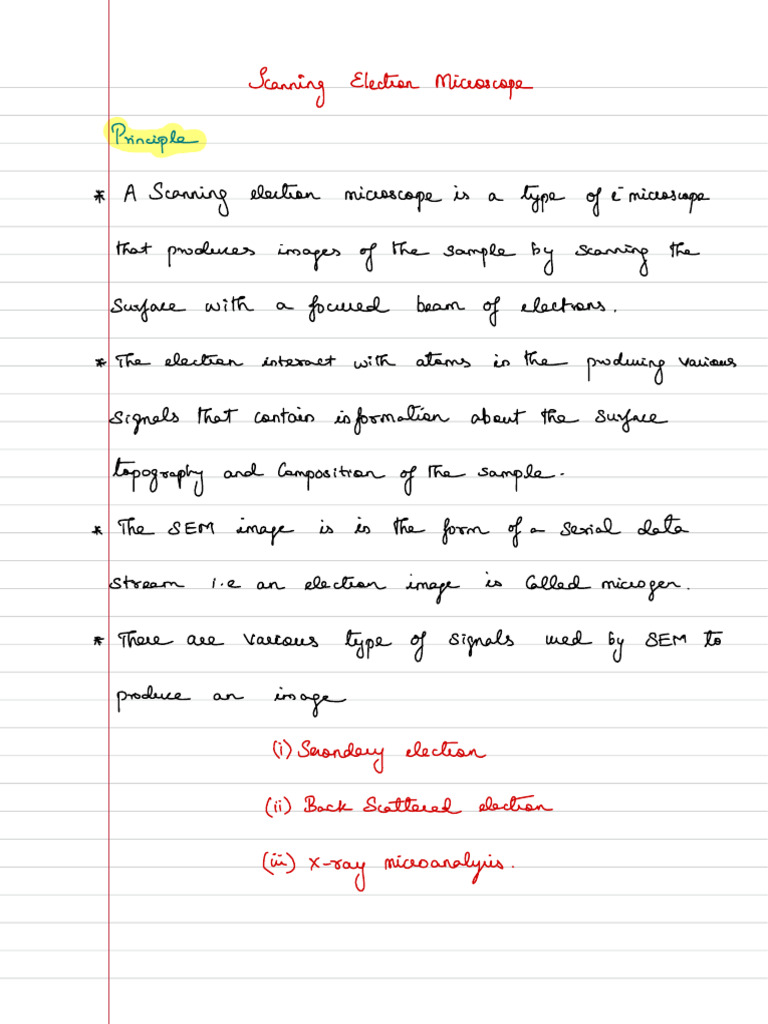 Scanning Electron Microscope
Principle
* A Scanning electron microscope is a type of e⁻ microscope
that produces images of the sample by scanning the
surface with a focused beam of electrons.
* The electron interact with atoms in the producing various
signals that contain information about the surface
topography and Composition of the sample.
* The SEM image is in the form of a serial data
stream i.e an electron image is called microgen.
* There are various type of signals used by SEM to
produce an image
(i) Secondary electron
(ii) Back Scattered electron
(iii) X-ray microanalysis.